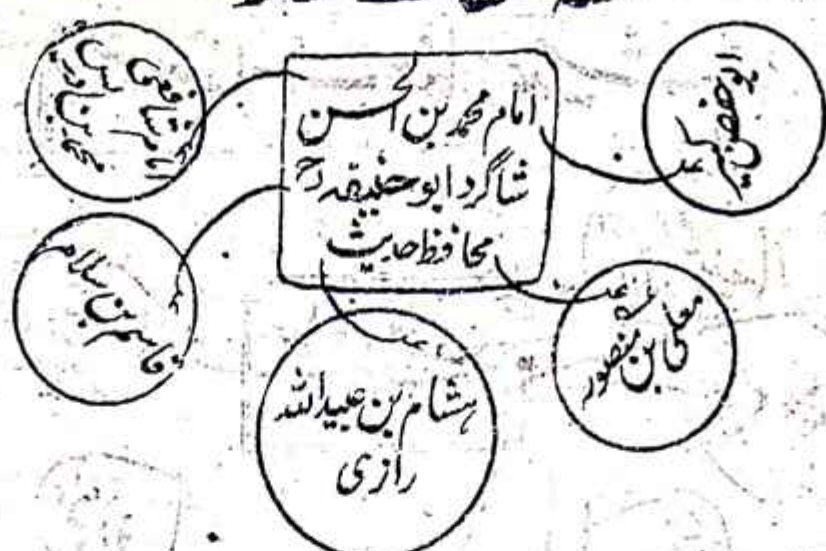 امام محمد بن الحسن
شاگرد ابو حنیفہ رح
محافظ حدیث
ابو حفص کبیر
معلی بن منصور
ہشام بن عبیداللہ
رازی
قاسم بن سلام
امام شافعی
محمد بن ادریس